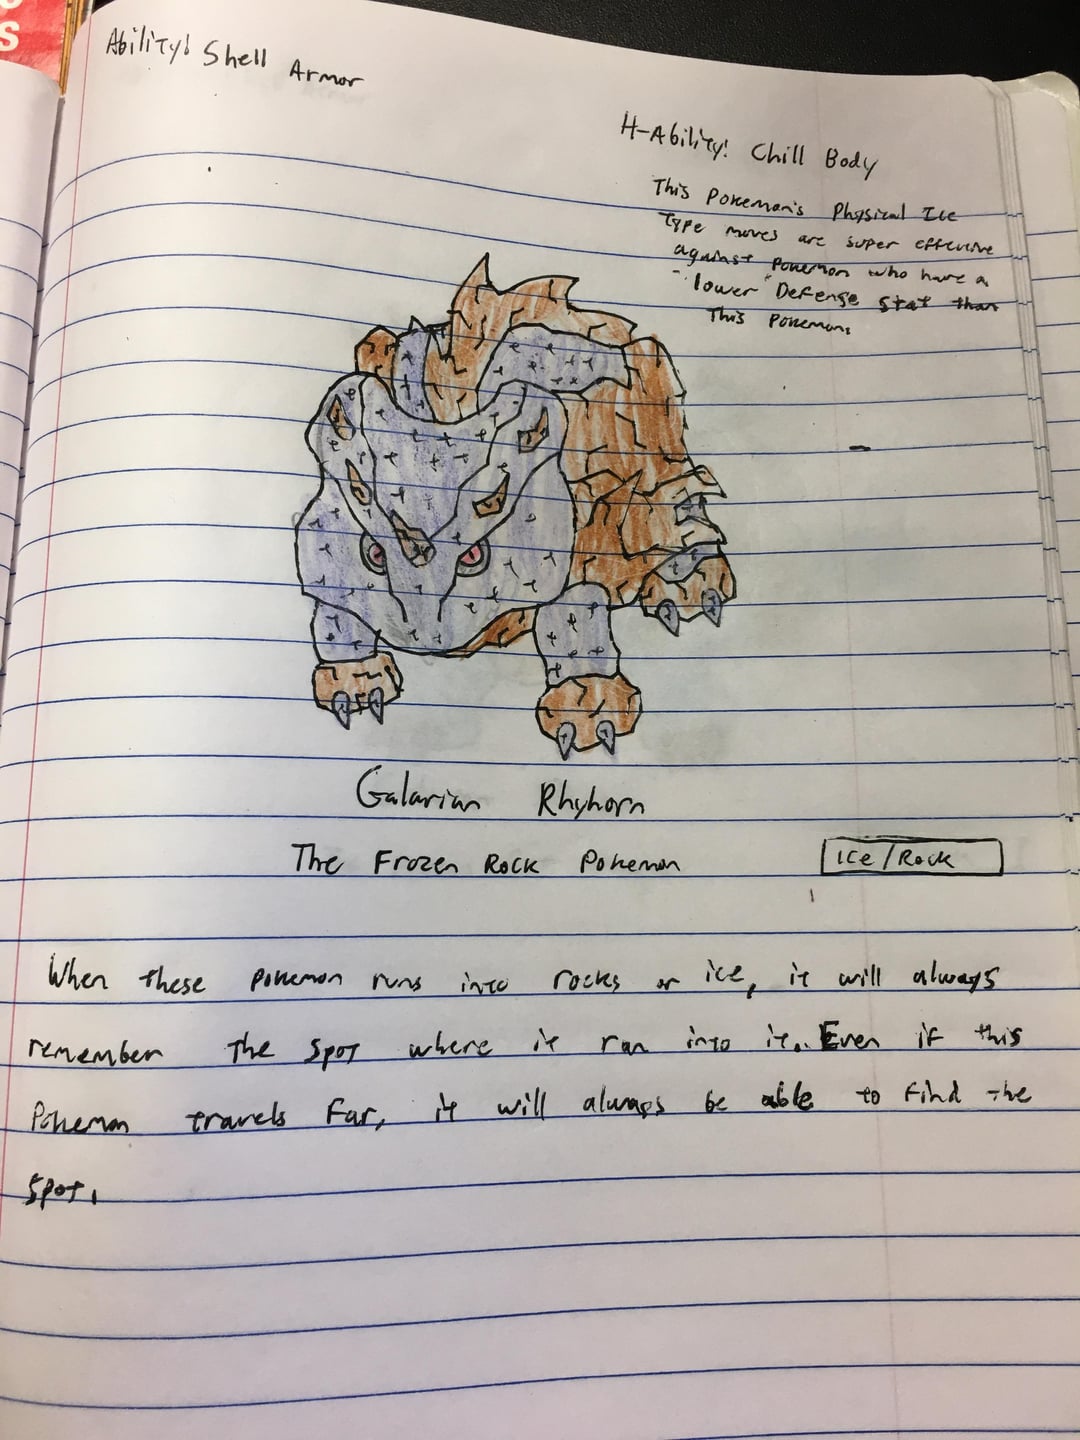 S
Ability: Shell Armor
H-Ability: Chill Body
This Pokemon's Physical Ice
Type moves are super effective
against Pokemon who have a
lower Defense stat than
This Pokemon.
Galarian Rhyhorn
The Frozen Rock Pokemon
Ice/Rock
When these pokemon runs into rocks or ice, it will always
remember the spot where it ran into it. Even if this
Pokemon travels far, it will always be able to find the
spot.